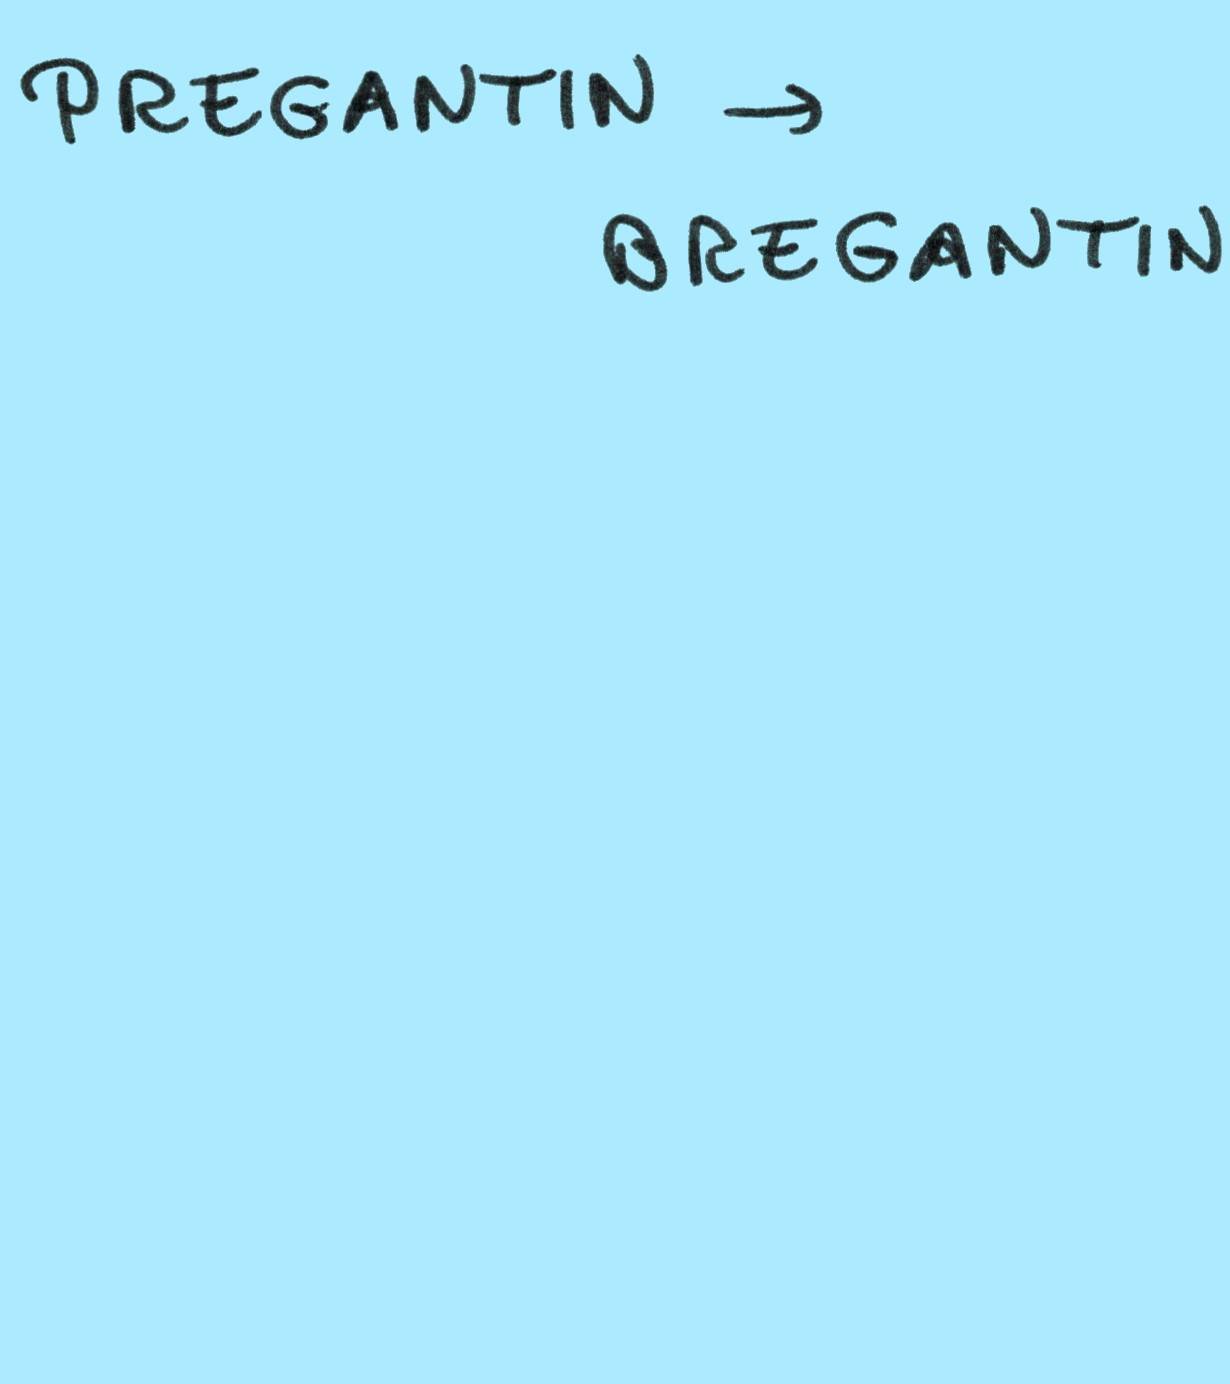 PREGANTIN →
BREGANTIN